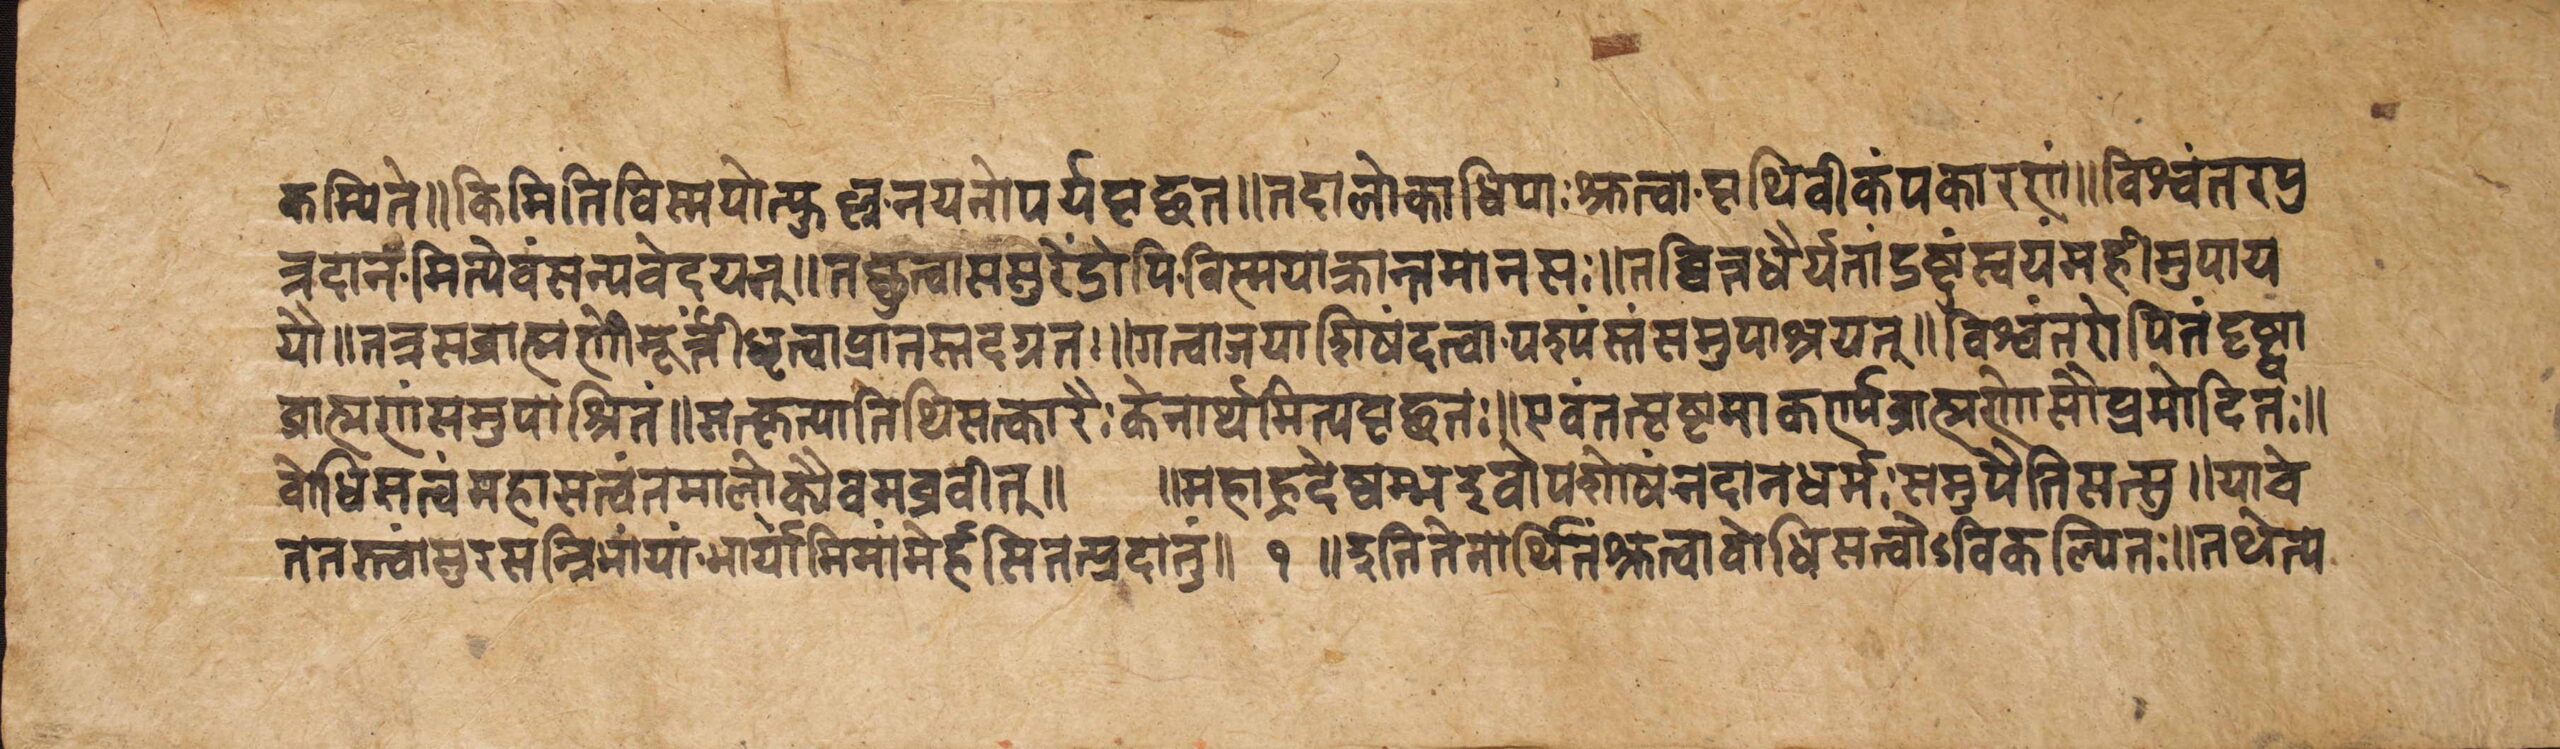 कम्पिते॥किमितिविस्मयोत्फुल्ल·नयनोपर्यपृच्छत॥तदालोकाधिपाःश्रुत्वा·पृथिवीकंपकारणं॥विश्वंतरपु
त्रदानं·मित्येवंसन्यवेदयन्॥तच्छ्रुत्वाससुरेंद्रोपि·विस्मयाक्रान्तमानसः॥तच्चित्तधैर्यतांद्रष्टुंस्वयंमहीमुपाय
यौ॥तत्रसब्राह्मणीमूर्त्तीधृत्वाप्रातस्तदग्रतः॥गत्वाजयाशिषंदत्वा·पश्यंस्तंसमुपाश्रयत्॥विश्वंतरोपितंदृष्ट्वा
ब्राह्मणंसमुपाश्रितं॥सत्कृत्यातिथिसत्कारैःकेनार्थमित्यपृच्छतः॥एवंतत्पृष्टमाकर्ण्यब्राह्मणोसौप्रमोदितः॥
बोधिसत्वंमहासत्वंतमालोक्यैवमब्रवीत्॥ ॥महाह्रदेष्वम्भइवोपशोषंनदानधर्मःसमुपैतिसत्सु॥याचे
ततस्त्वांसुरसन्निभांयां·भार्यामिमांमेर्हसितत्प्रदातुं॥ १ ॥इतितेनार्थितंश्रुत्वाबोधिसत्वोऽविकल्पितः॥तथेत्य